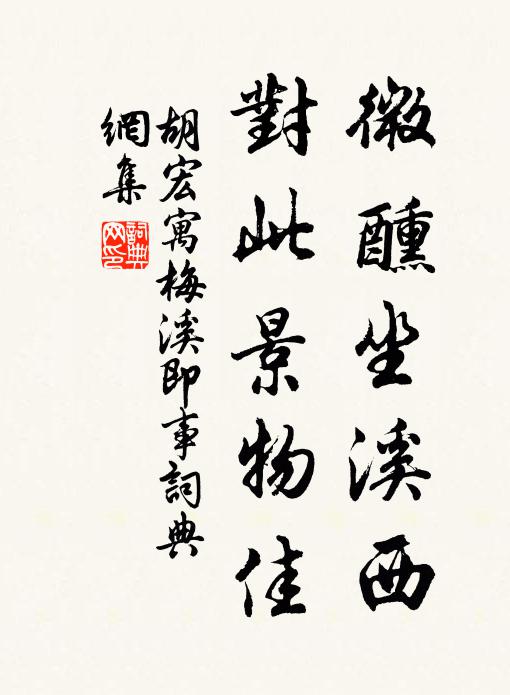 微醺坐溪西
對此景物佳
胡宏寓梅溪即事詞典
網集
詞典
网印